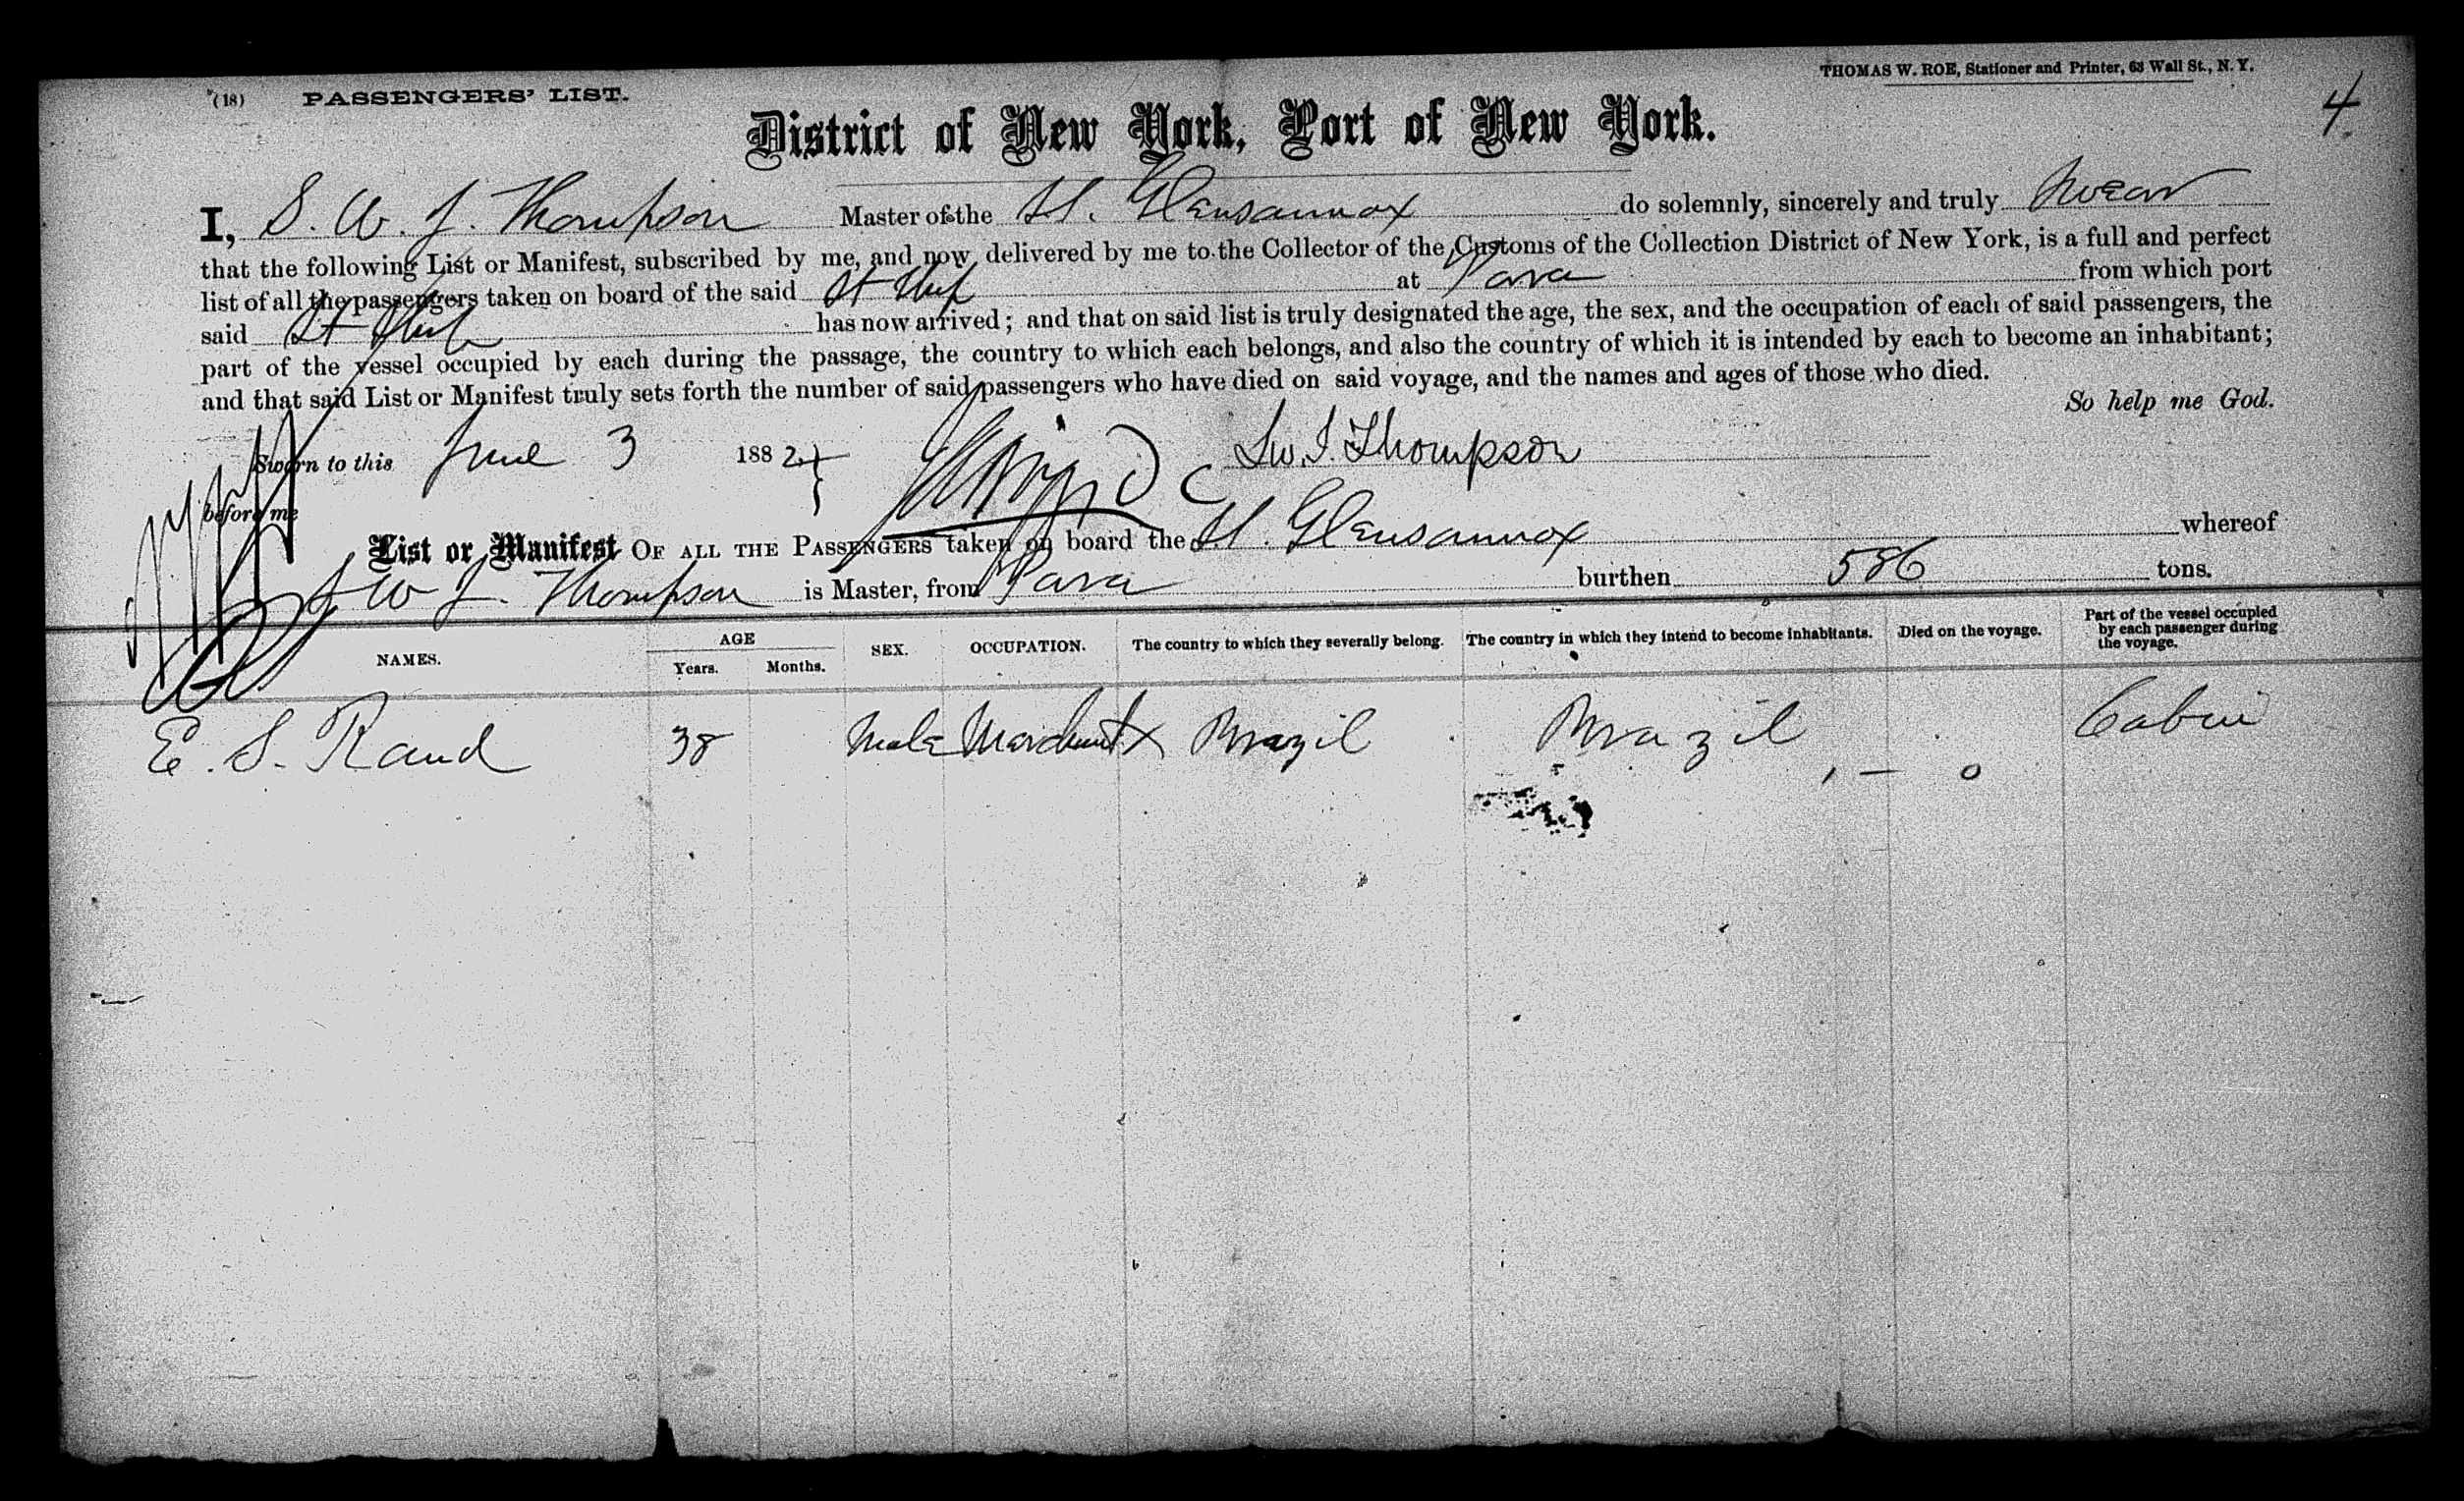 (18) PASSENGERS' LIST.
THOMAS W. ROE, Stationer and Printer, 63 Wall St., N. Y.
4
District of New York, Port of New York.
I, S. W. J. Thompson Master of the St. Glensannox do solemnly, sincerely and truly swear
that the following List or Manifest, subscribed by me, and now delivered by me to the Collector of the Customs of the Collection District of New York, is a full and perfect
list of all the passengers taken on board of the said St Ship at Para from which port
said St Ship has now arrived; and that on said list is truly designated the age, the sex, and the occupation of each of said passengers, the
part of the vessel occupied by each during the passage, the country to which each belongs, and also the country of which it is intended by each to become an inhabitant;
and that said List or Manifest truly sets forth the number of said passengers who have died on said voyage, and the names and ages of those who died.
So help me God.
Sworn to this June 3 1882 S.W.J. Thompson
before me
List or Manifest OF ALL THE PASSENGERS taken on board the St. Glensannox whereof
S W J. Thompson is Master, from Para burthen 586 tons.
NAMES. AGE Years. Months. SEX. OCCUPATION. The country to which they severally belong. The country in which they intend to become inhabitants. Died on the voyage. Part of the vessel occupied by each passenger during the voyage.
E. S. Rand 38 Male Merchant x Brazil Brazil Cabin